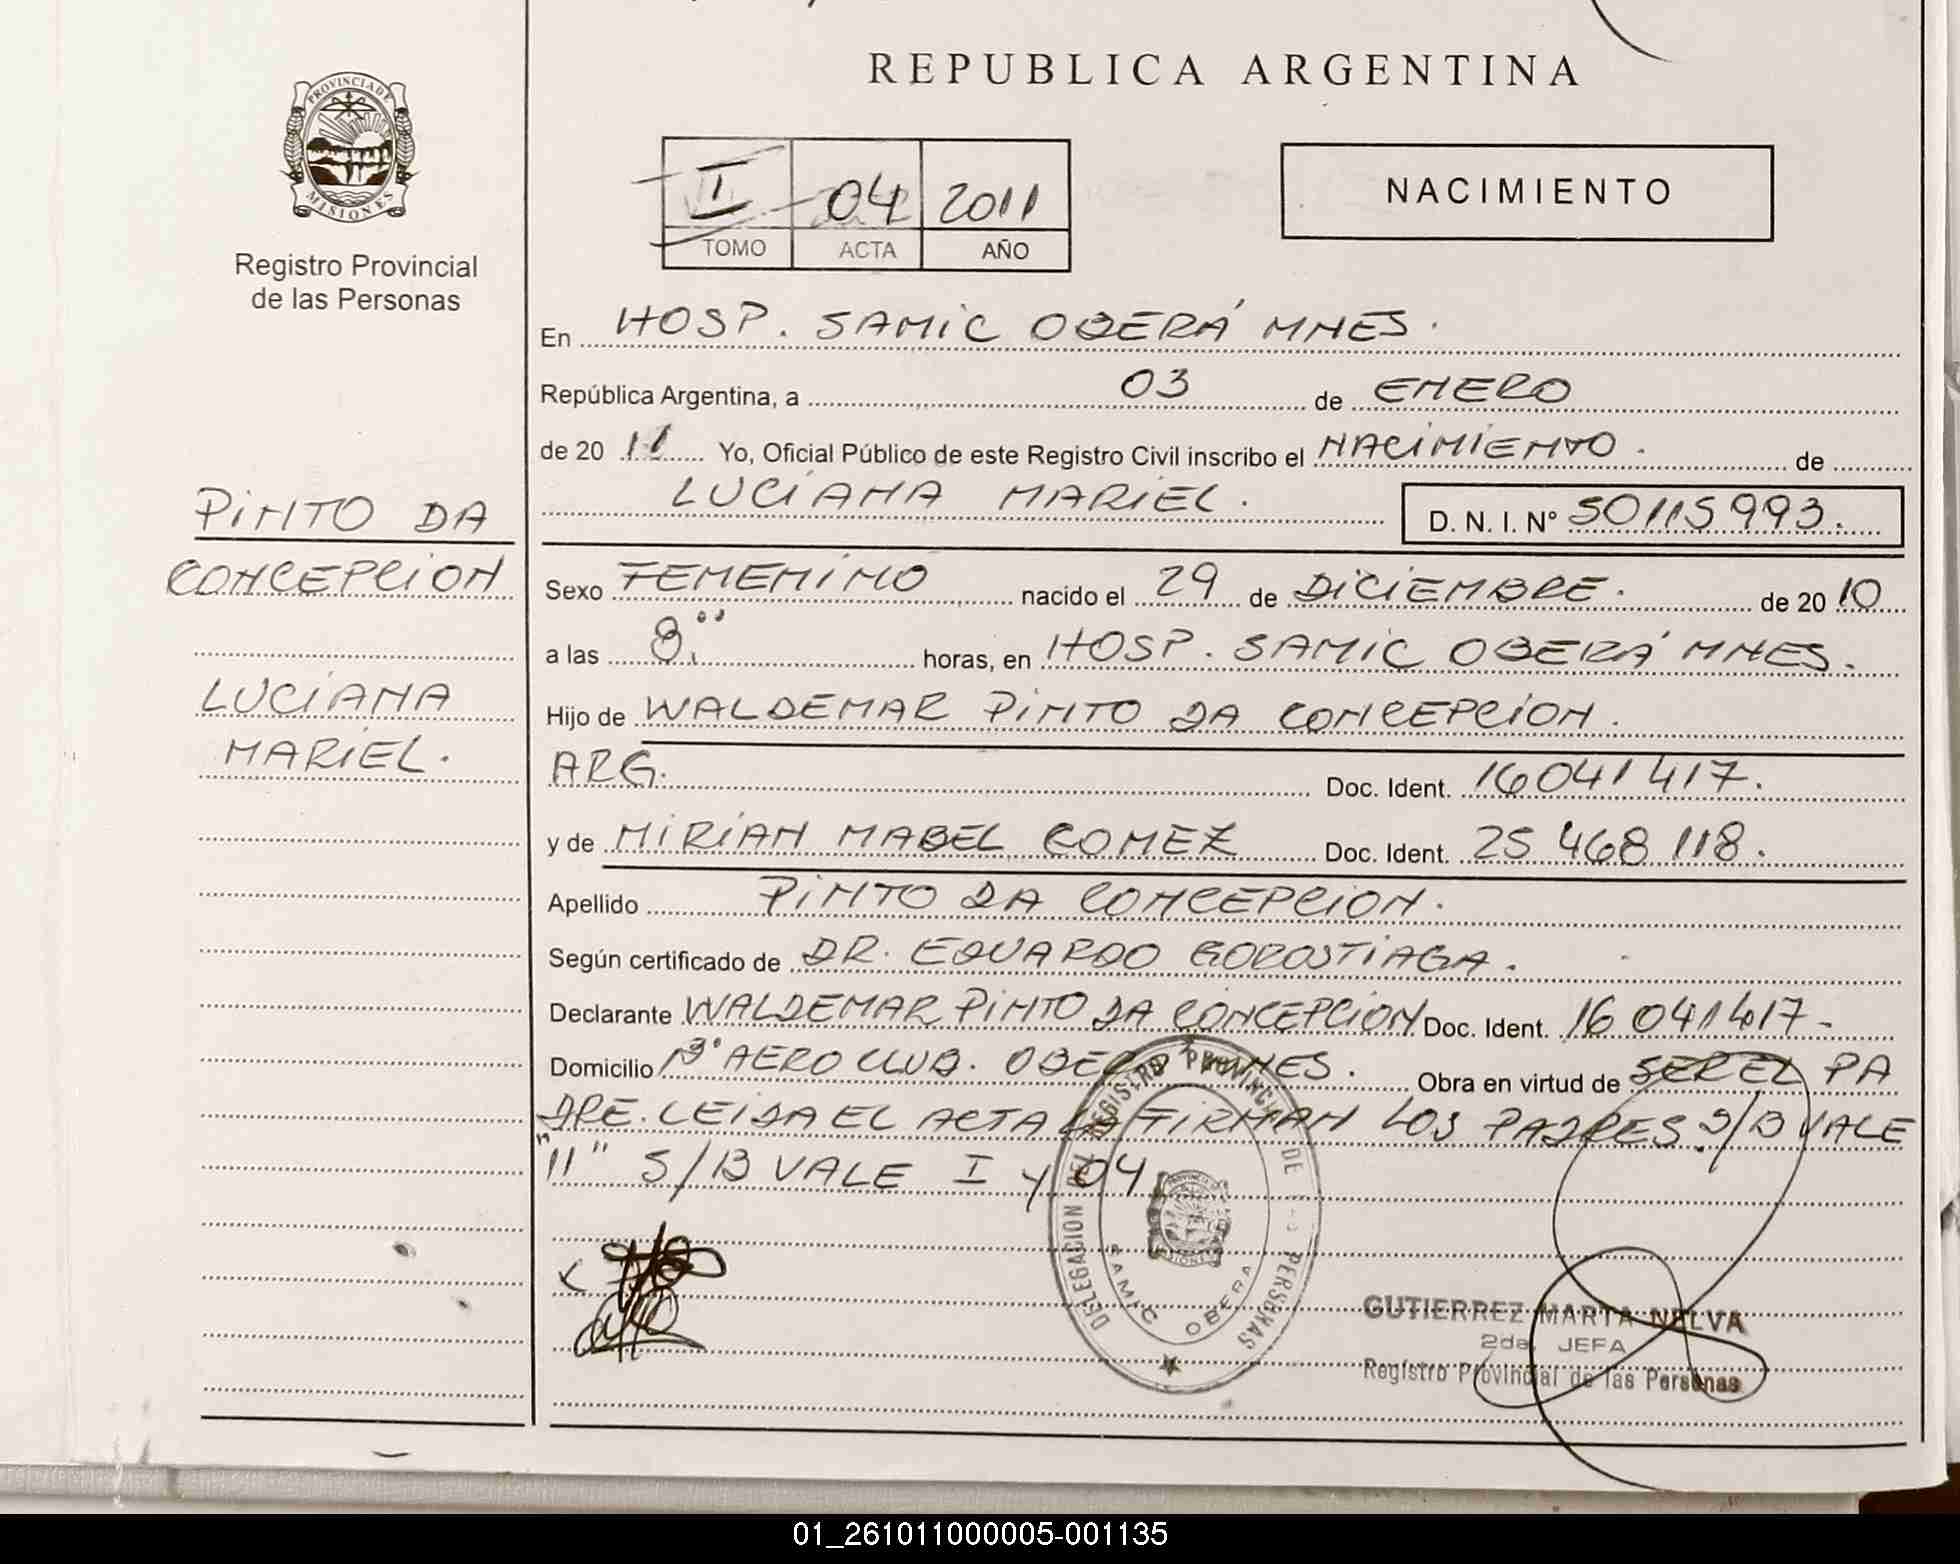 REPUBLICA ARGENTINA
PROVINCIA DE
MISIONES
Registro Provincial
de las Personas
I 04 2011
TOMO ACTA AÑO
NACIMIENTO
En HOSP. SAMIC OBERÁ MNES.
República Argentina, a 03 de ENERO
de 20 11 Yo, Oficial Público de este Registro Civil inscribo el NACIMIENTO. de
LUCIANA MARIEL. D. N. I. N° 50115993.
PINTO DA
CONCEPCION
LUCIANA
MARIEL.
Sexo FEMENINO nacido el 29 de DICIEMBRE. de 20 10
a las 8.°° horas, en HOSP. SAMIC OBERÁ MNES.
Hijo de WALDEMAR PINTO DA CONCEPCION.
ARG. Doc. Ident. 16041417.
y de MIRIAN MABEL GOMEZ Doc. Ident. 25 468 118.
Apellido PINTO DA CONCEPCION.
Según certificado de DR. EDUARDO GOROSTIAGA.
Declarante WALDEMAR PINTO DA CONCEPCION Doc. Ident. 16 041417-
Domicilio B° AERO CLUB. OBERA MNES. Obra en virtud de SER EL PA
DRE. LEIDA EL ACTA LA FIRMAN LOS PADRES S/B VALE
"11" S/B VALE I y 04
DELEGACION DEL REGISTRO PROVINCIAL DE LAS PERSONAS
SAMIC OBERA
GUTIERREZ MARTA NELVA
2da. JEFA
Registro Provincial de las Personas
01_261011000005-001135